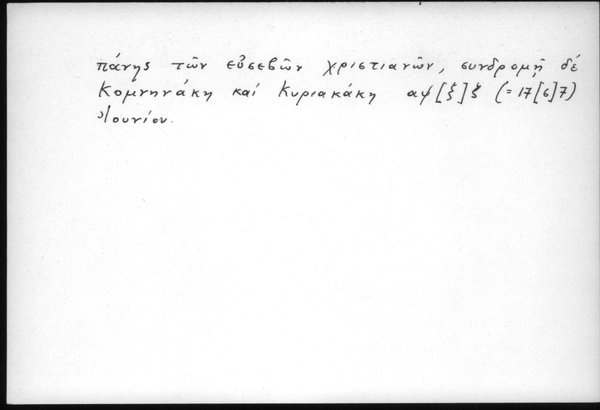 πάνης τῶν εὐσεβῶν χριστιανῶν, συνδρομῇ δέ
Κομνηνάκη καί Κυριακάκη αψ[ξ]ζ (=17[6]7)
Ἰουνίου.